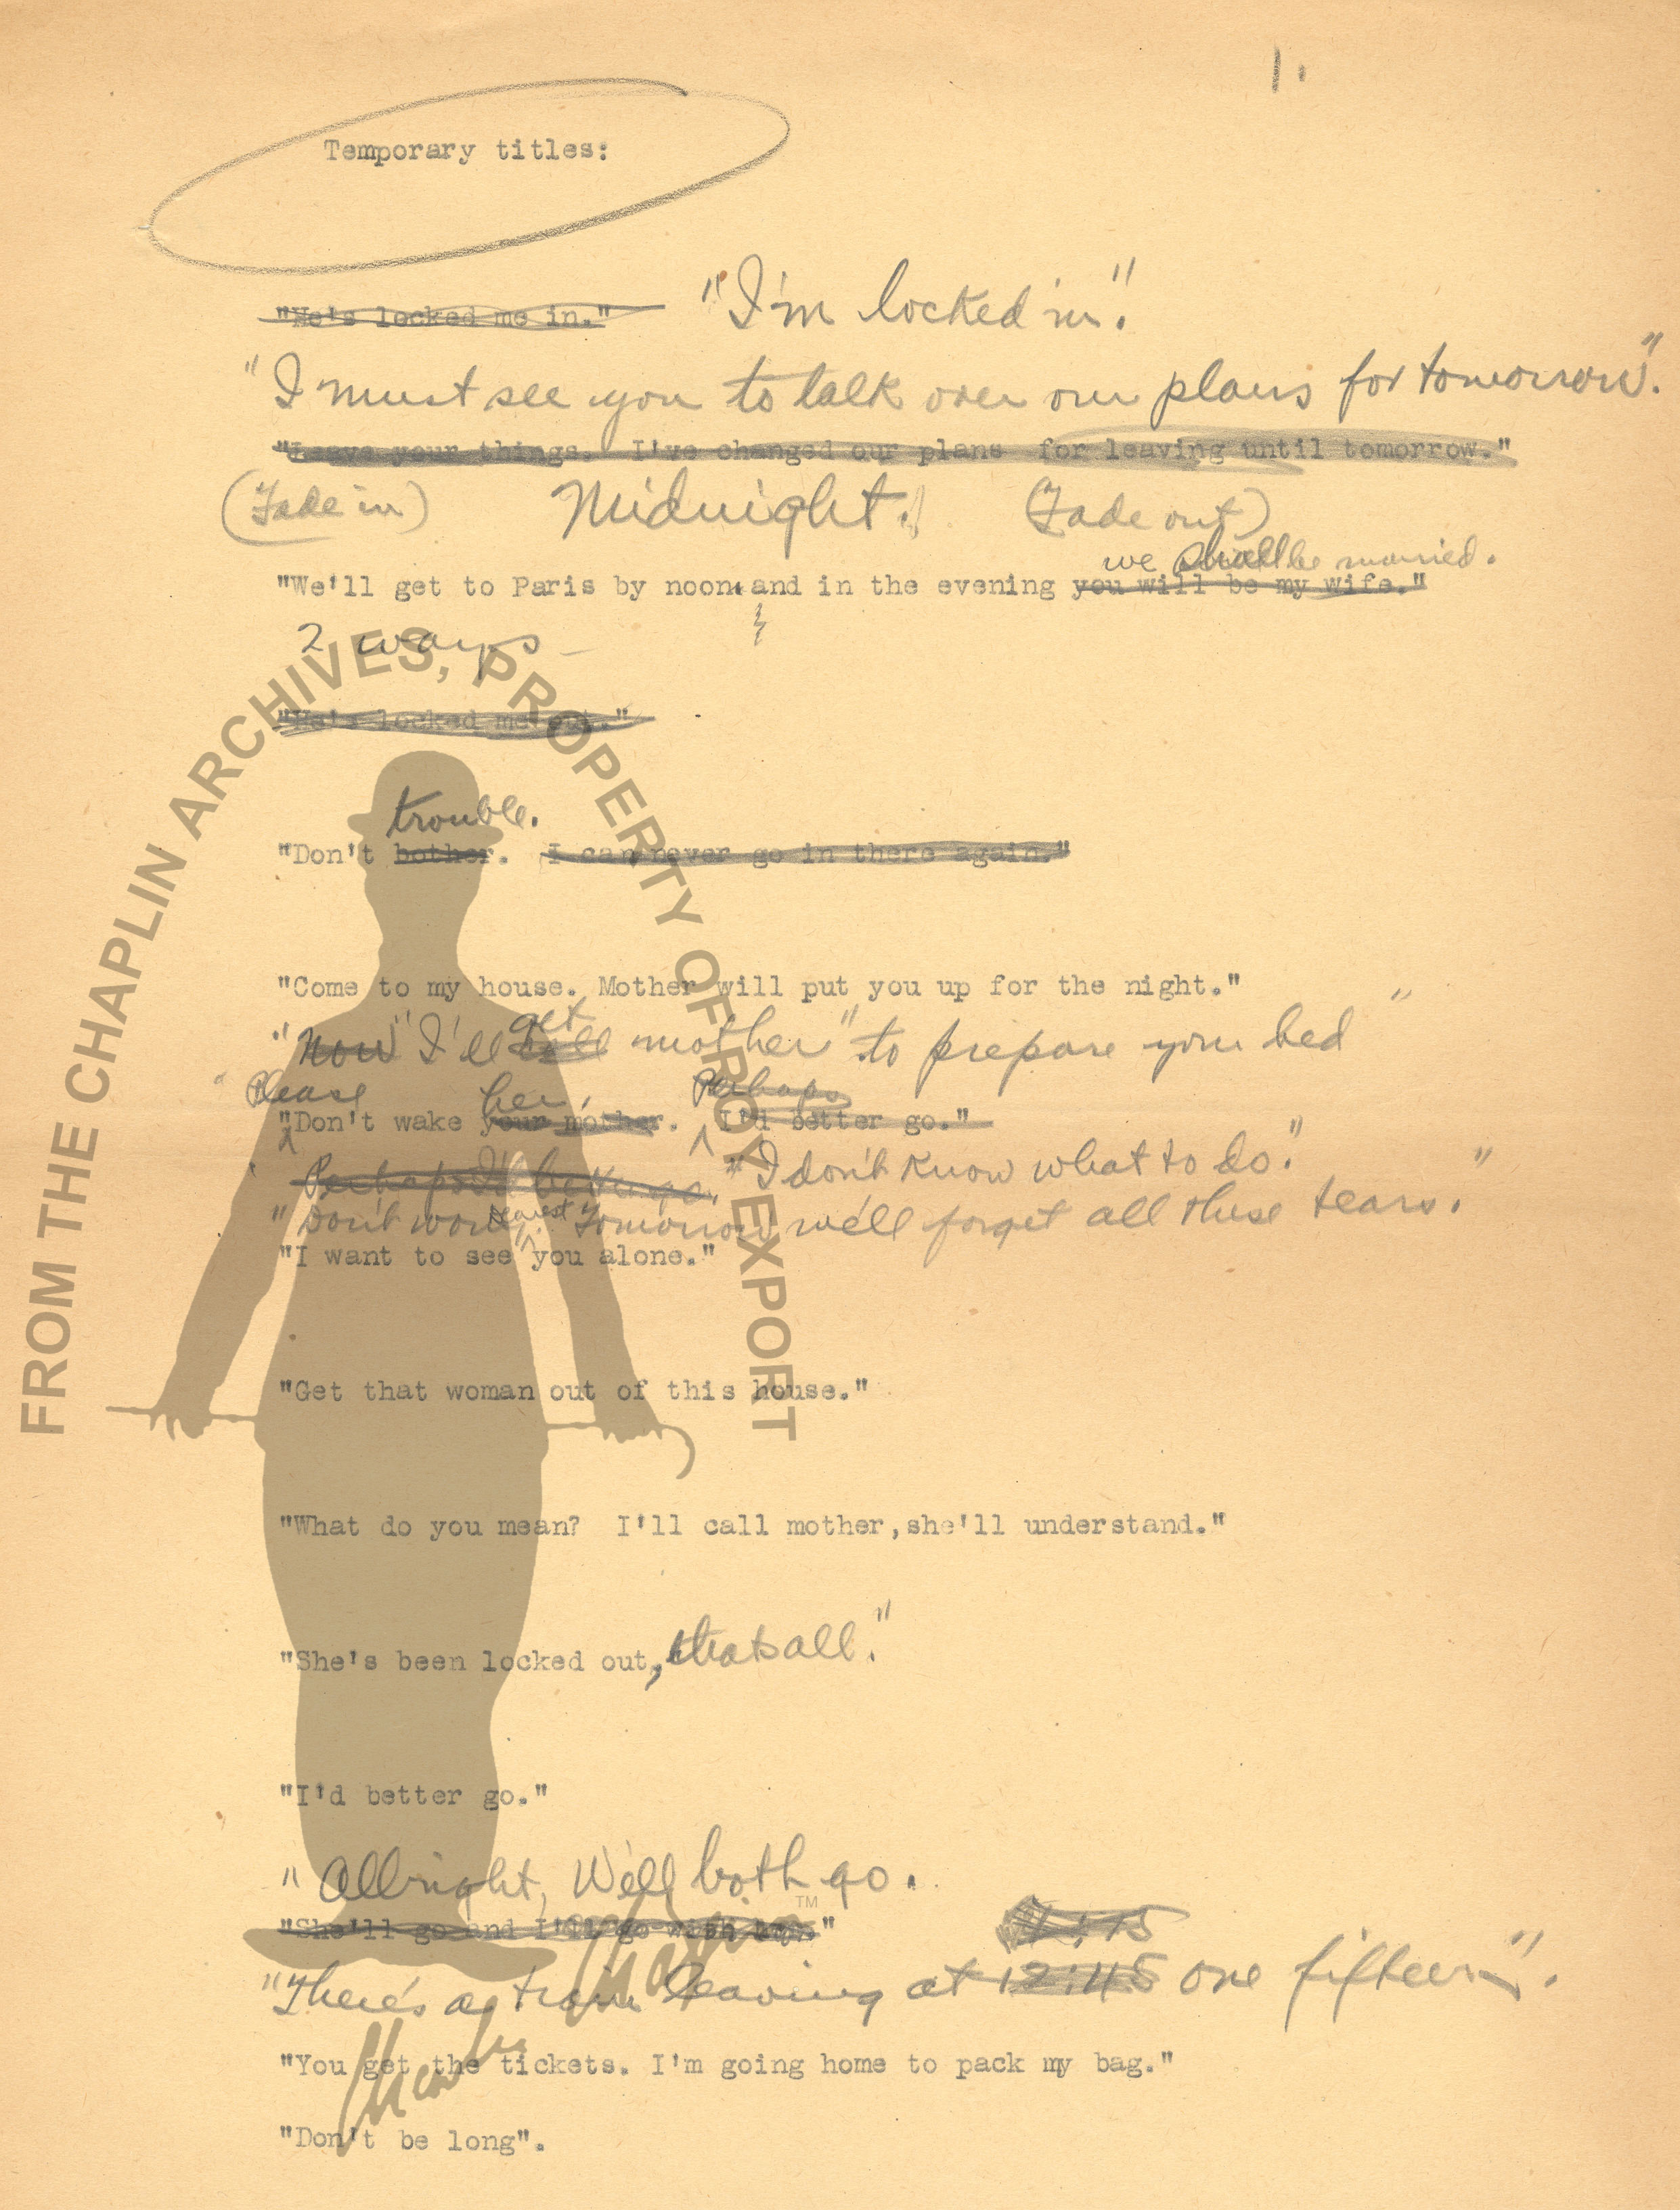 1.
Temporary titles:
"He's locked me in." "I'm locked in".
"I must see you to talk over our plans for tomorrow".
"Leave your things. I've changed our plans for leaving until tomorrow."
(Fade in) Midnight. (Fade out)
we shall be married.
"We'll get to Paris by noon and in the evening you will be my wife."
2 ways -
"He's locked me out."
trouble.
"Don't bother. I can never go in there again."
"Come to my house. Mother will put you up for the night."
get
"Now" I'll call mother" to prepare your bed"
Please her. Perhaps
"Don't wake your mother. I'd better go."
Perhaps I'd better go. "I don't know what to do."
dearest
"Don't worry. Tomorrow we'll forget all these tears."
"I want to see you alone."
"Get that woman out of this house."
"What do you mean? I'll call mother,she'll understand."
"She's been locked out, thats all."
"I'd better go."
"Allright, We'll both go.
"She'll go and I'll go with her."
1:15
"There's a train leaving at 12:45 one fifteen".
"You get the tickets. I'm going home to pack my bag."
"Don't be long".
FROM THE CHAPLIN ARCHIVES, PROPERTY OF ROY EXPORT
Charles Chaplin TM